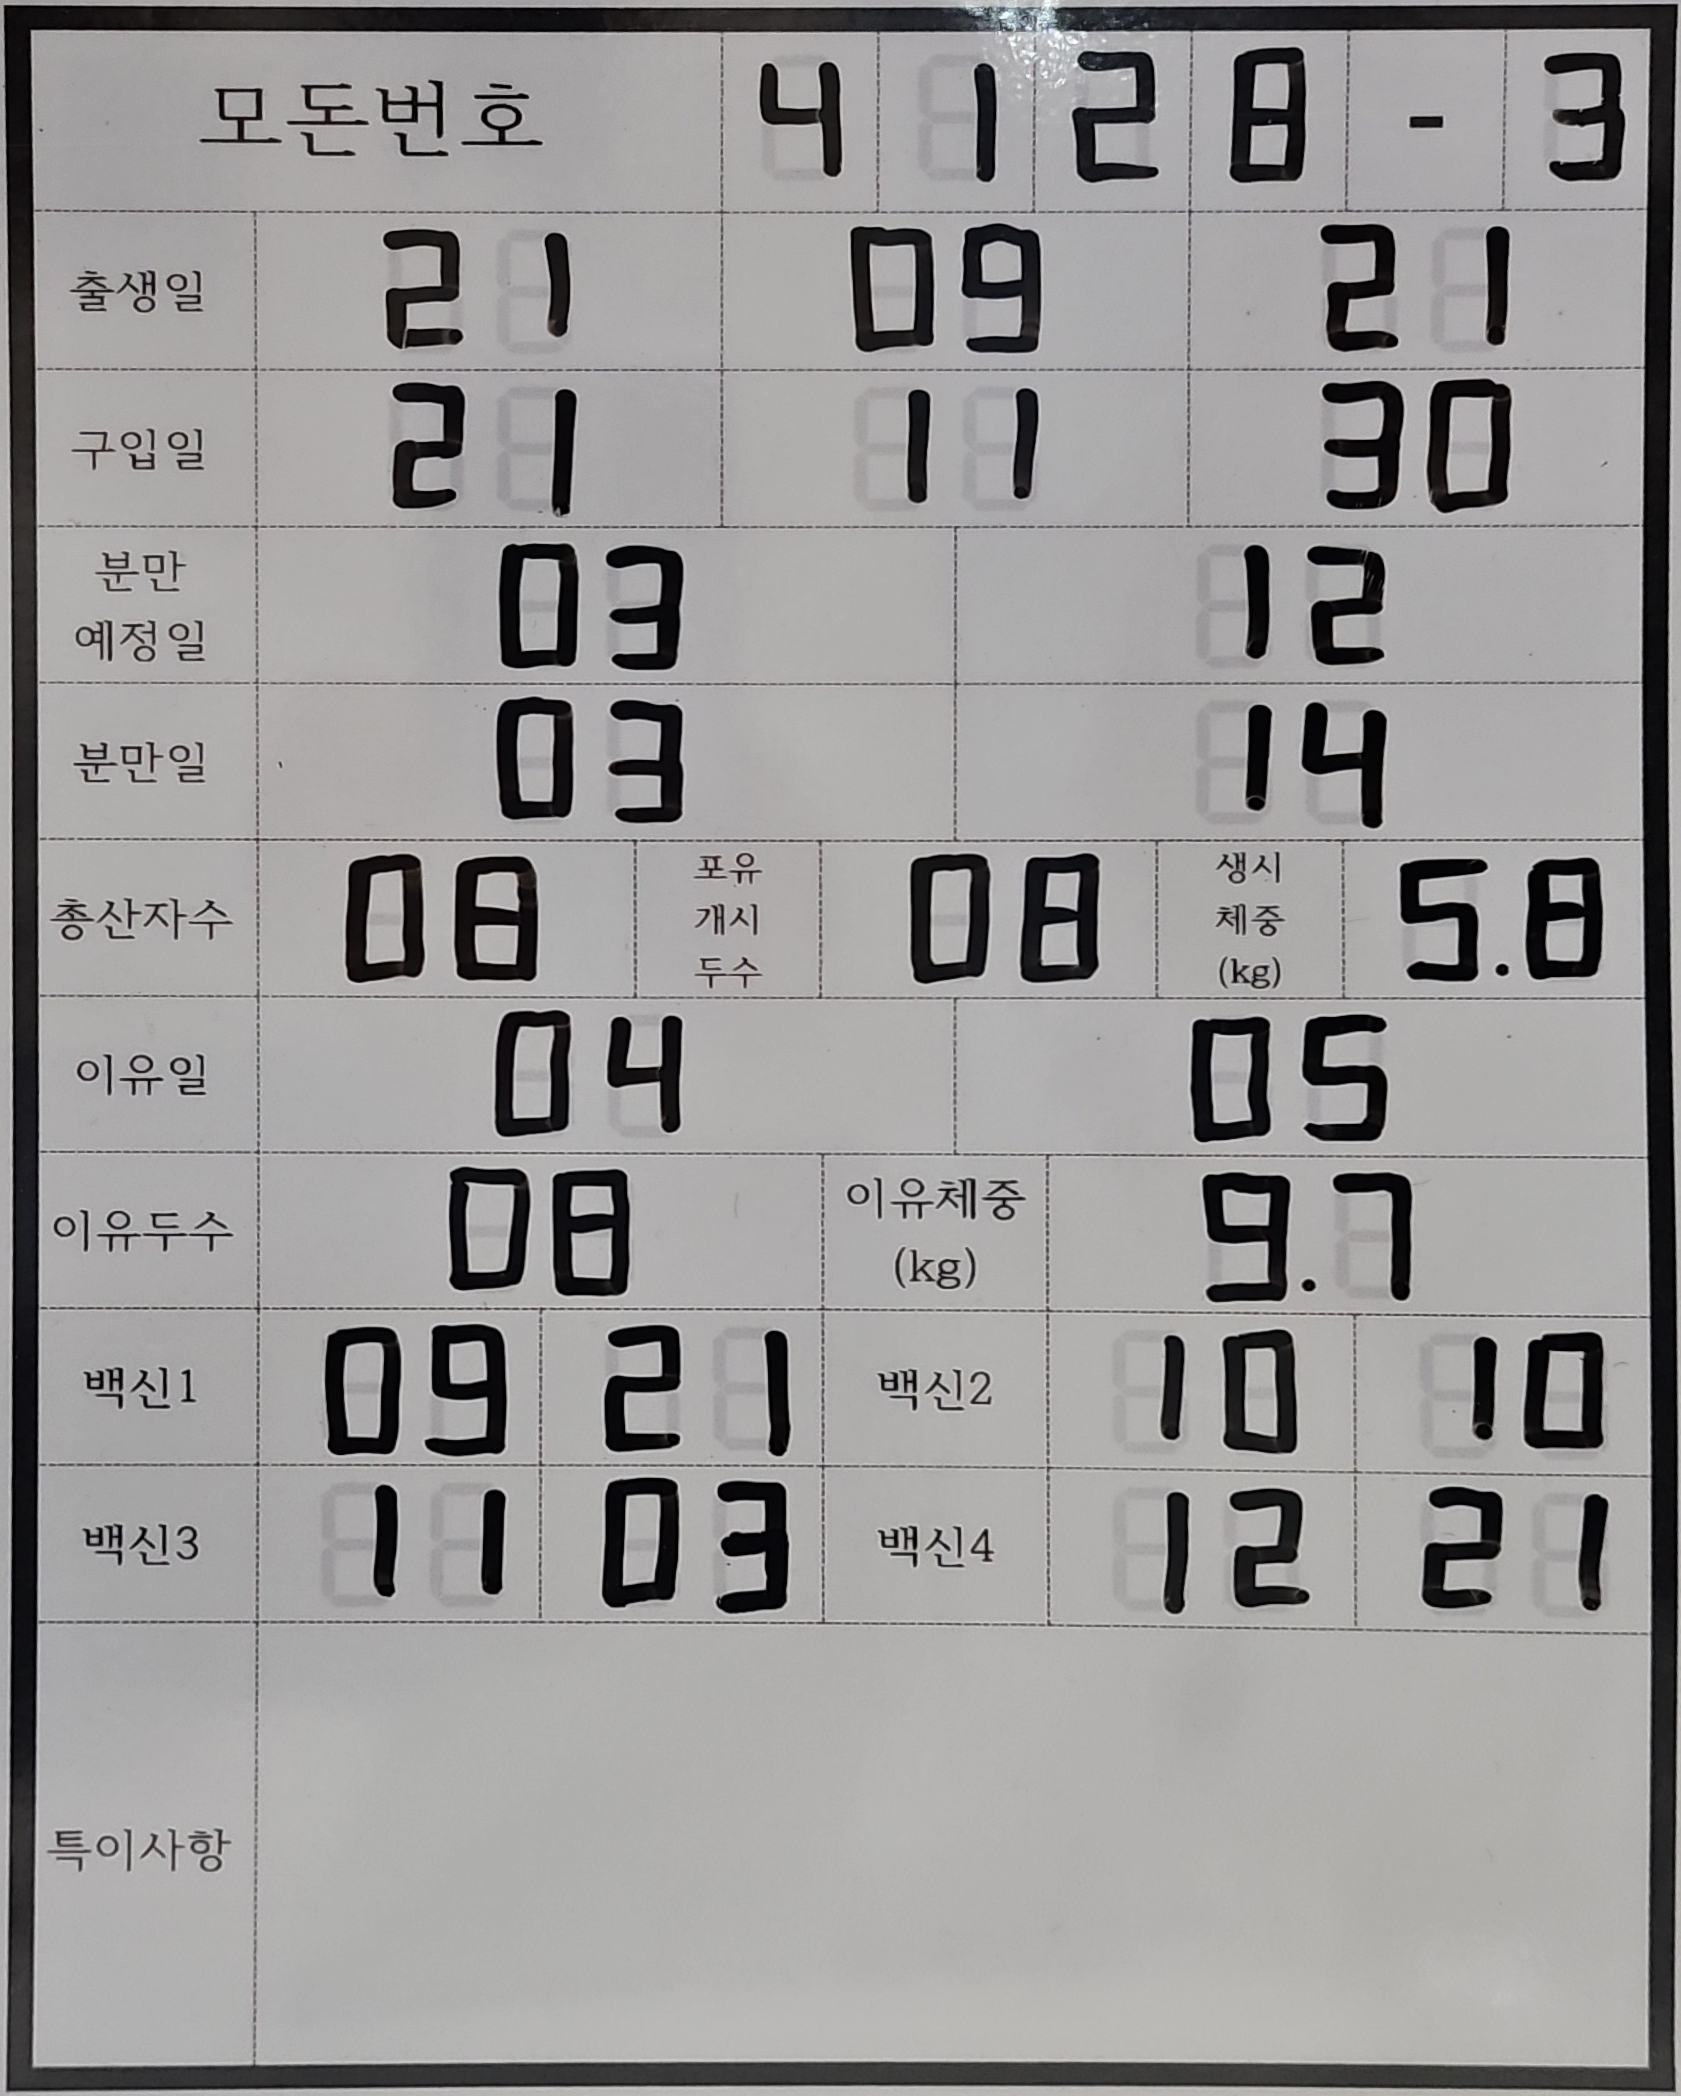 모돈번호 4 1 2 8 - 3
출생일 21 09 21
구입일 21 11 30
분만
예정일 03 12
분만일 03 14
총산자수 08 포유
개시
두수 08 생시
체중
(kg) 5.8
이유일 04 05
이유두수 08 이유체중
(kg) 9.7
백신1 09 21 백신2 10 10
백신3 11 03 백신4 12 21
특이사항